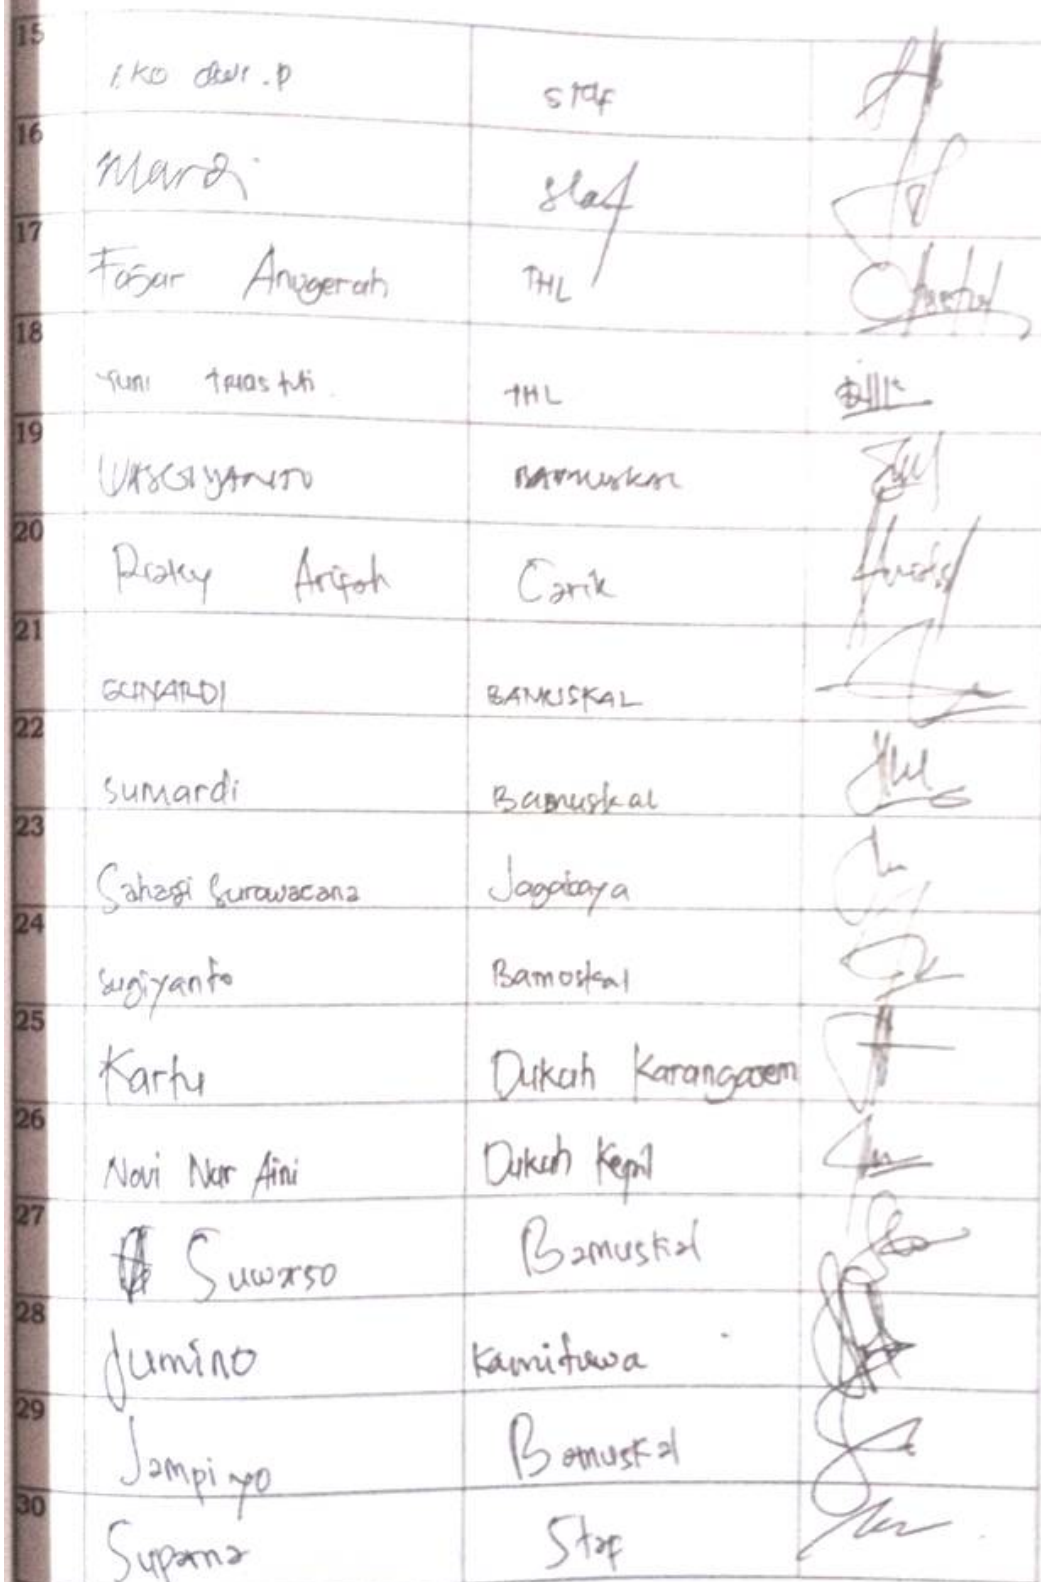 15 iko dwi .p staf
16 Mardi staf
17 Fajar Anugerah THL
18 Yuni triastuti THL
19 WASGIYANTO BAMUSKAL
20 Rizky Arifah Carik
21 GUNARDI BAMUSKAL
22 Sumardi Bamuskal
23 Sahagi Surawacana Jagabaya
24 Sugiyanto Bamoskal
25 Dukuh Karangasem
26 Novi Nur Aini Dukuh Kepil
27 Suwarso Bamuskal
28 Jumino Kamituwa
29 Jampiyo Bamuskal
30 Suparna Staf